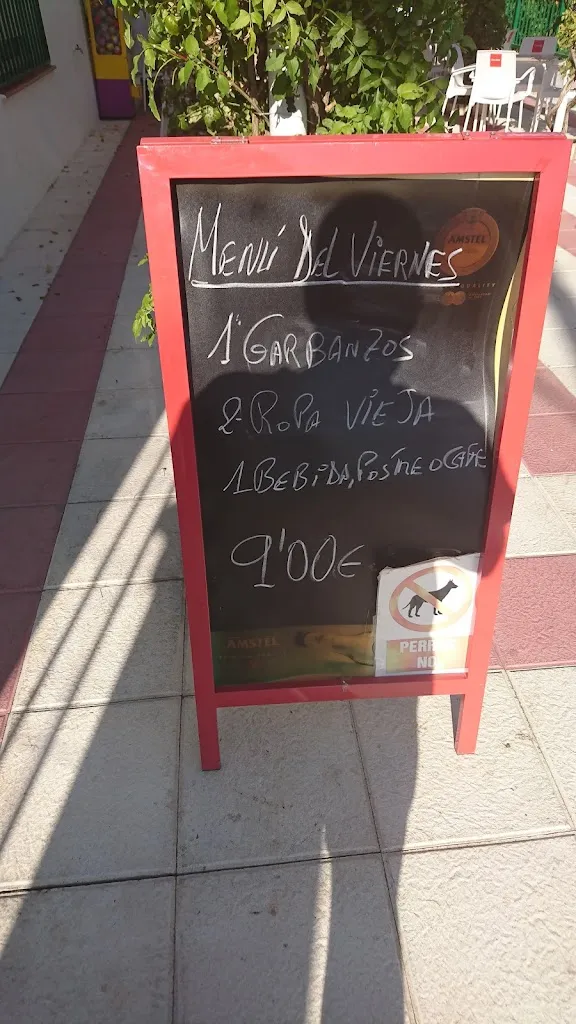 Menú Del Viernes
AMSTEL
1º Garbanzos
2- Ropa Vieja
1 Bebida, Postre o Cafe
9'00€
AMSTEL
PERR
NO